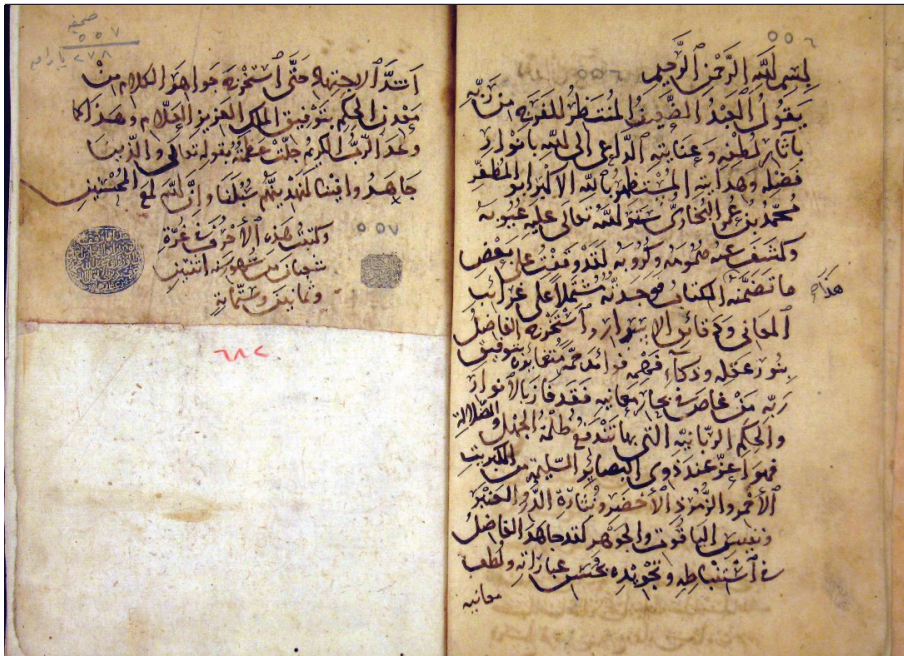 ٥٥٦
بسم الله الرحمن الرحيم
يقول العبد الضعيف المنتظر للفرج من ربه
بآثار لطفه وعنايته الداعي الى الله بانوار
فضله وهدايته المستظهر بالله الاكبر ابو المظفر
محمد بن عمر البخاري ستر الله تعالى عليه عيوبه
وكشف عنه همومه وكروبه لقد وقفت على بعض
ما تضمنه الكتاب فوجدته مشتملا على غرايب
هذا
المعاني ودقائق الاسرار واستخرج الفاضل
بنور عقله وذكاء فهمه فوائد جمة بتوفيق
ربه من غاص في بحار معانيه فقد فاز بالأنوار
والحكم الربانية التي بها تندفع ظلمة الجهل والضلالة
فهو اعز عند ذوى البصاير السليمة من الكبريت
الأحمر والزمرد الأخضر و الدر والعنبر
ونفيس الياقوت والجوهر لقد جاهد الفاضل
في استنباطه وتجويده بحسن عباراته ولطف
معانيه
صحيفه
٥٥٧
٢٧٨
الاجتهاد حتى استخرج جواهر الكلام من
معدن الحكم بتوفيق الملك العزيز العلام وهذا كما
وعد الرب الكريم جلت عظمته بقوله تعالى والذين
جاهدوا فينا لنهدينهم سبلنا وان الله لمع المحسنين
وكتبت هذه الأحرف في غرة
شعبان من شهور سنة اثنين
وثمانين وستمائة
٥٥٧
٦٨٢